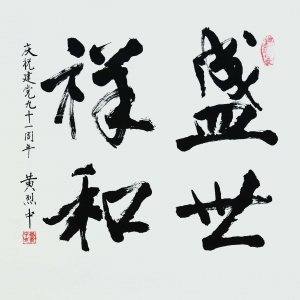 盛世
祥和
庆祝建党九十一周年
黄烈中